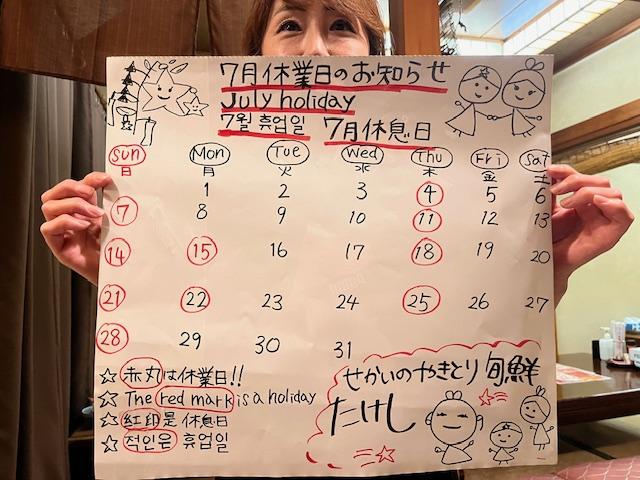 7月休業日のお知らせ
July holiday
7월 휴업일 7月休息日
Sun Mon Tue Wed Thu Fri Sat
日 月 火 水 木 金 土
1 2 3 4 5 6
7 8 9 10 11 12 13
14 15 16 17 18 19 20
21 22 23 24 25 26 27
28 29 30 31
☆ 赤丸は休業日!!
☆ The red mark is a holiday
☆ 紅印是休息日
☆ 적인은 휴업일
せかいのやきとり 旬鮮
たけし